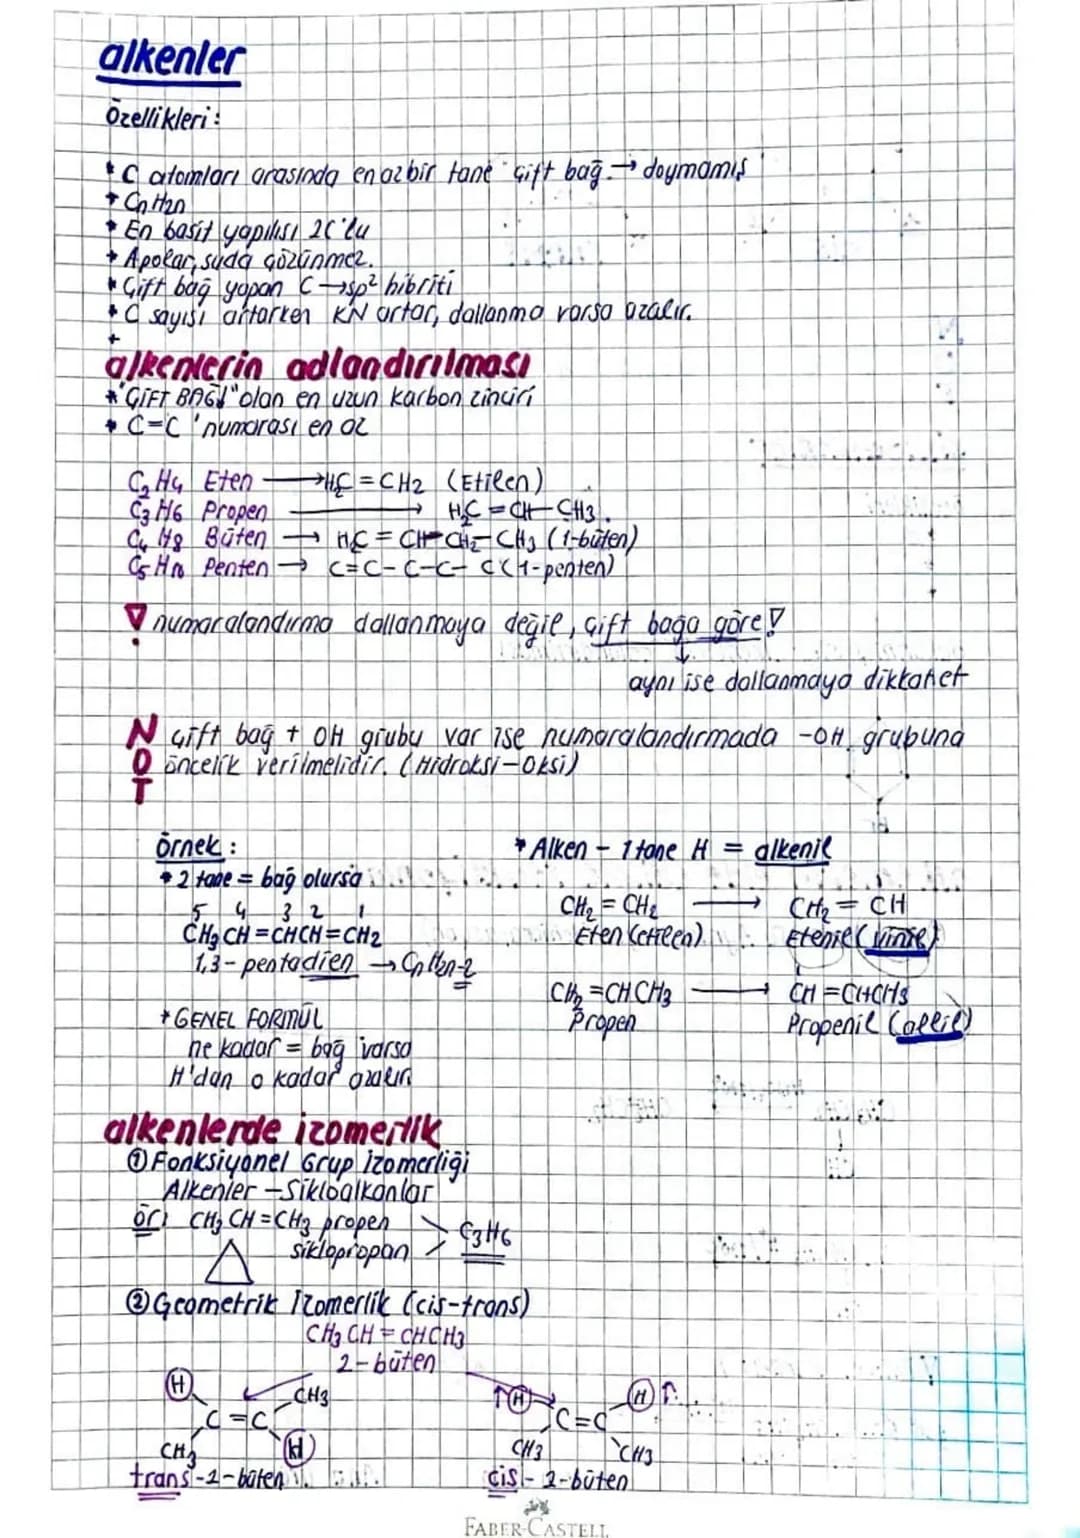 alkenler
Özellikleri:
* C atomları arasında en az bir tane çift bağ. → doymamış
* CnH2n
* En basit yapılısı 2C'lu
* Apolar, suda çözünmez.
* Çift bağ yapan C → sp² hibriti
* C sayısı artarken KN artar, dallanma varsa azalır.
*
alkenlerin adlandırılması
* "ÇİFT BAĞI" olan en uzun karbon zinciri
* C=C 'numarası en az
C2H4 Eten → H2C = CH2 (Etilen)
C3H6 Propen → H2C = CH - CH3.
C4H8 Büten → H2C = CH - CH2 - CH3 (1-büten)
C5H10 Penten → C=C-C-C-C (1-penten)
numaralandırma dallanmaya değil, çift bağa göre!
↓
aynı ise dallanmaya dikkat et
NOT çift bağ + OH grubu var ise numaralandırmada -OH grubuna
öncelik verilmelidir. (Hidroksi-Oksi)
Örnek:
* 2 tane = bağ olursa
5 4 3 2 1
CH3CH=CHCH=CH2
1,3-pentadien → CnH2n-2
* GENEL FORMÜL
ne kadar = bağ varsa
H'dan o kadar azalır.
* Alken - 1 tane H = alkenil
CH2 = CH2 → CH2 = CH
Eten (etilen) Etenil (vinil)
CH2 = CHCH3 → CH = CHCH3
Propen Propenil (allil)
alkenlerde izomerlik
① Fonksiyonel Grup İzomerliği
Alkenler - Sikloalkanlar
ör: CH3CH=CH3 propen
siklopropan
C3H6
② Geometrik İzomerlik (cis-trans)
CH3CH = CHCH3
2-büten
H CH3
C=C
CH3 H
trans-2-büten
H H
C=C
CH3 CH3
cis-2-büten
FABER-CASTELL